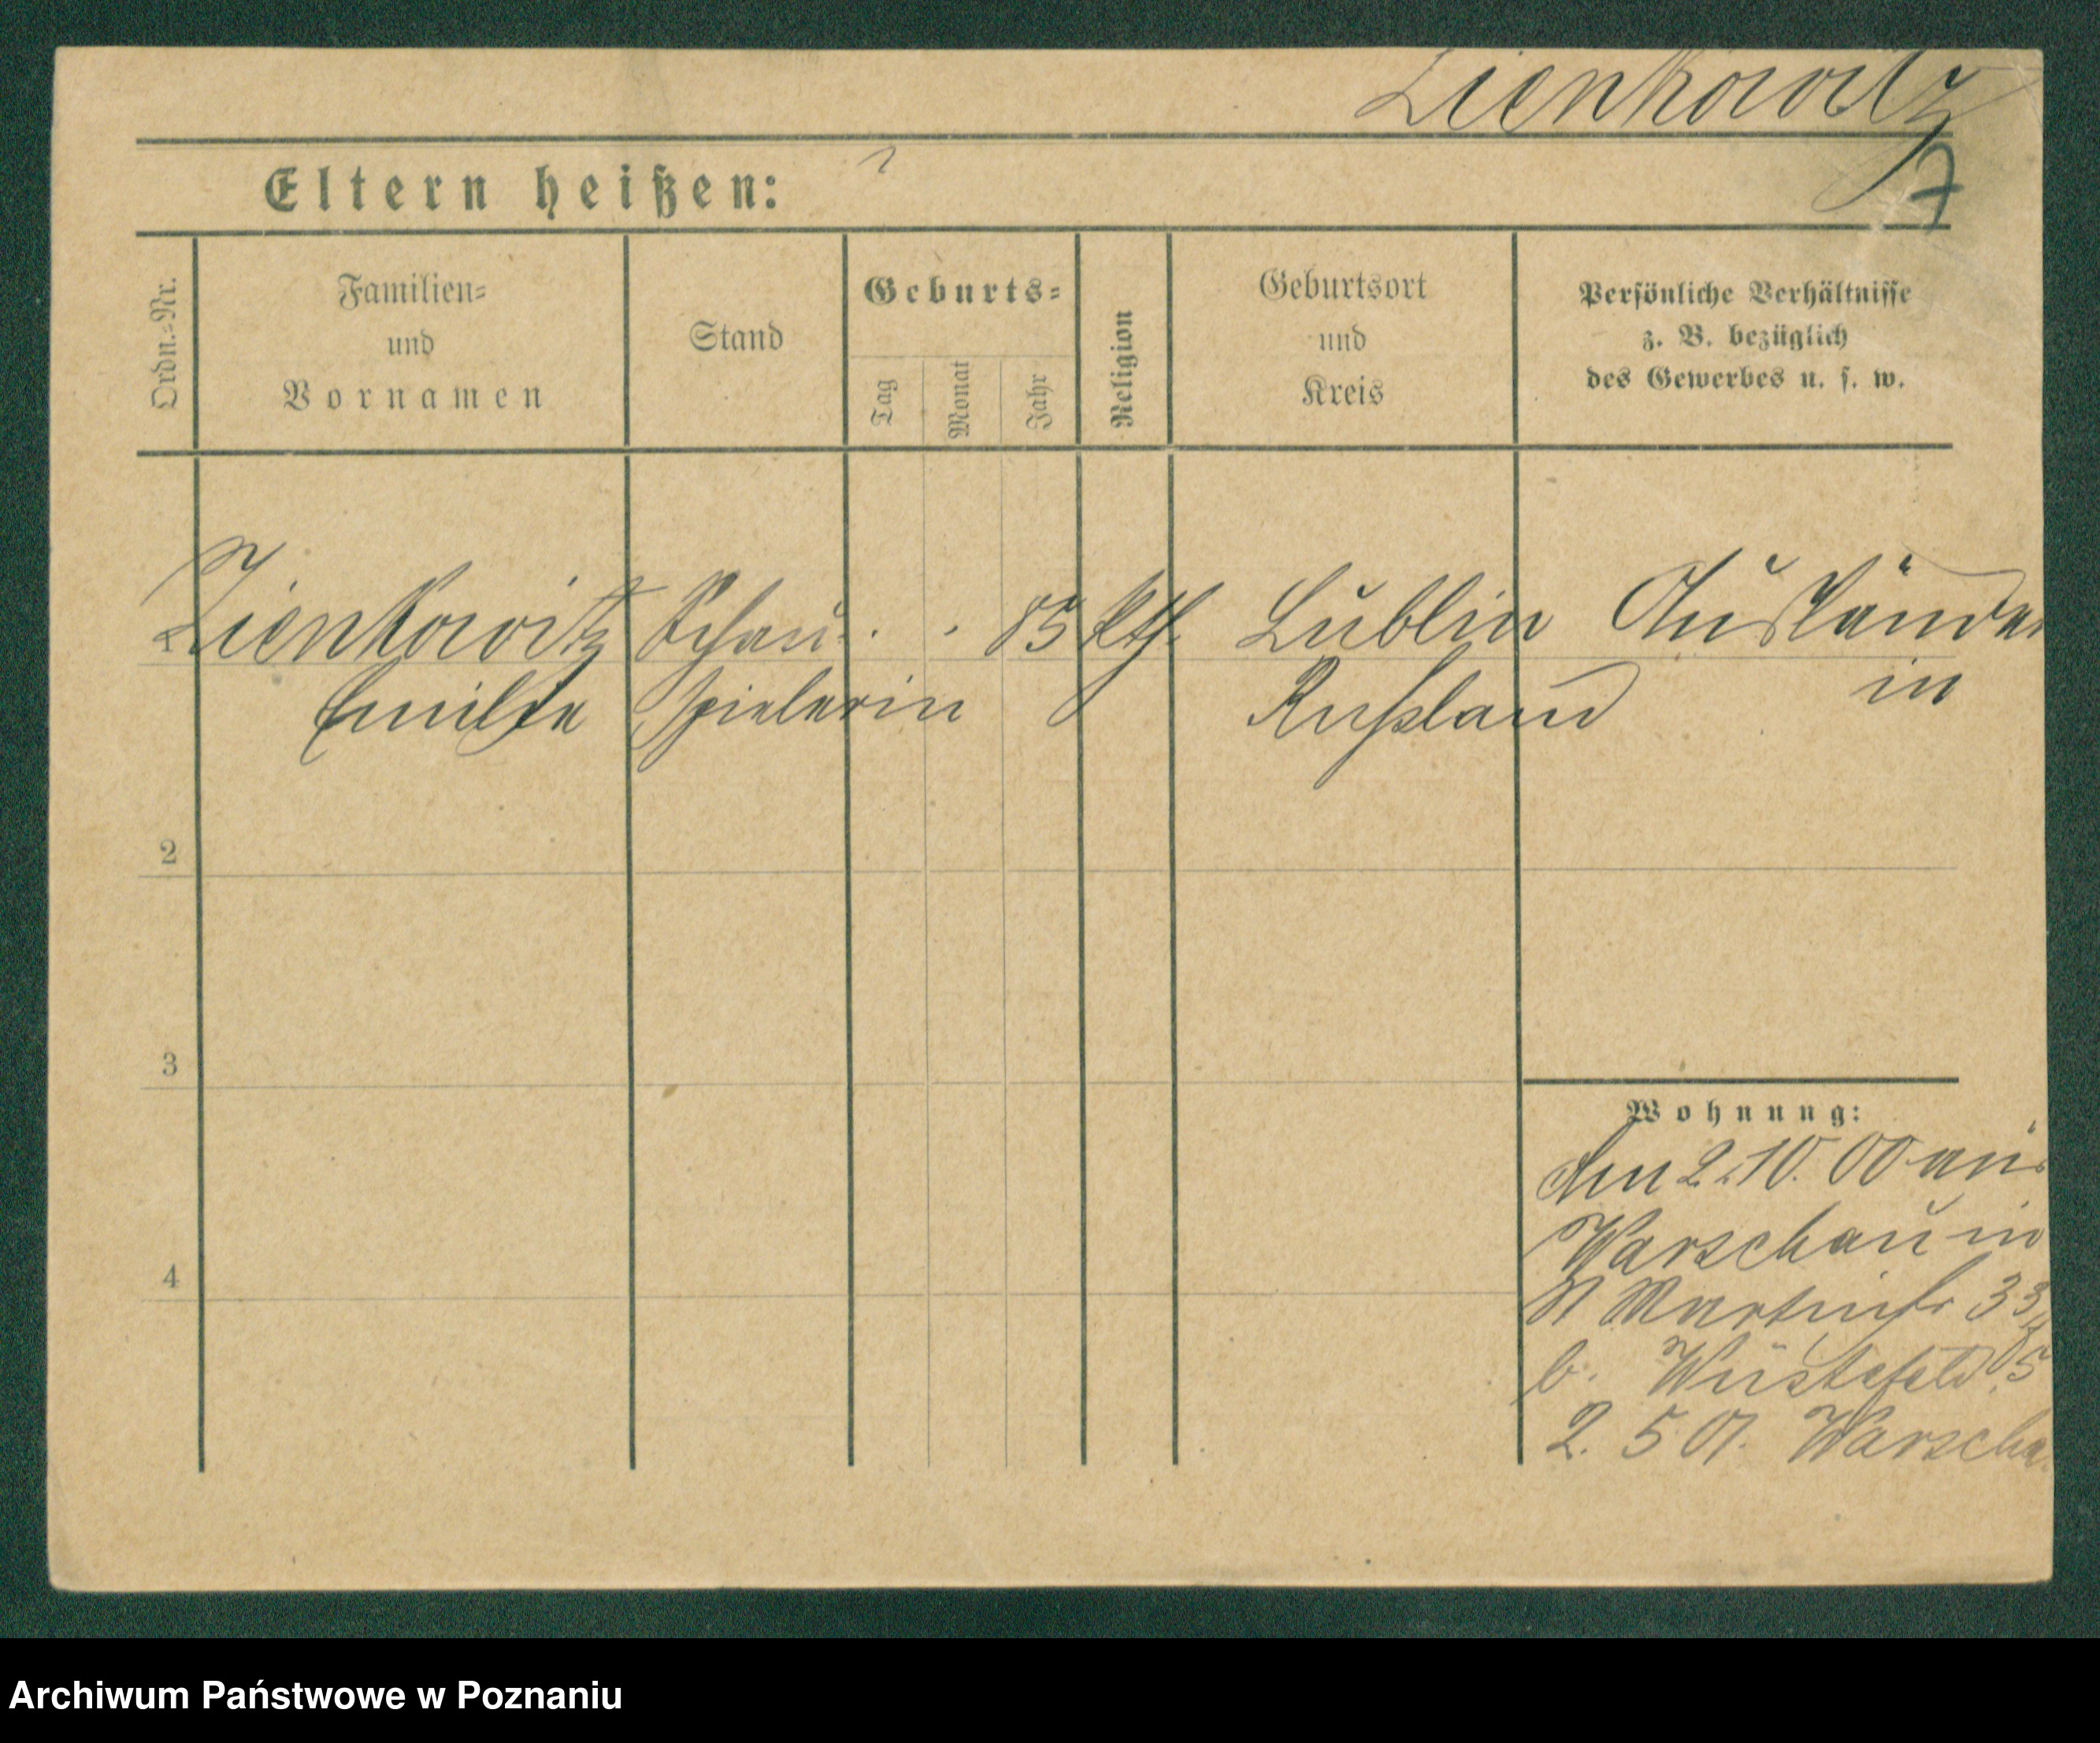 Zienkowitz
7
Eltern heißen: ?
Ordn.=Nr.
Familien=
und
Vornamen
Stand
Geburts=
Tag
Monat
Jahr
Religion
Geburtsort
und
Kreis
Persönliche Verhältnisse
z. B. bezüglich
des Gewerbes u. s. w.
1 Zienkowitz Schau= . . 85 kth. Lublin Ausländer
Emilie spielerin Rußland in
2
3
4
Wohnung:
Am 2.10.00 aus
Warschau in
St Martinstr 33
b. Wüstefeld
2. 5 01. Warschau
Archiwum Państwowe w Poznaniu